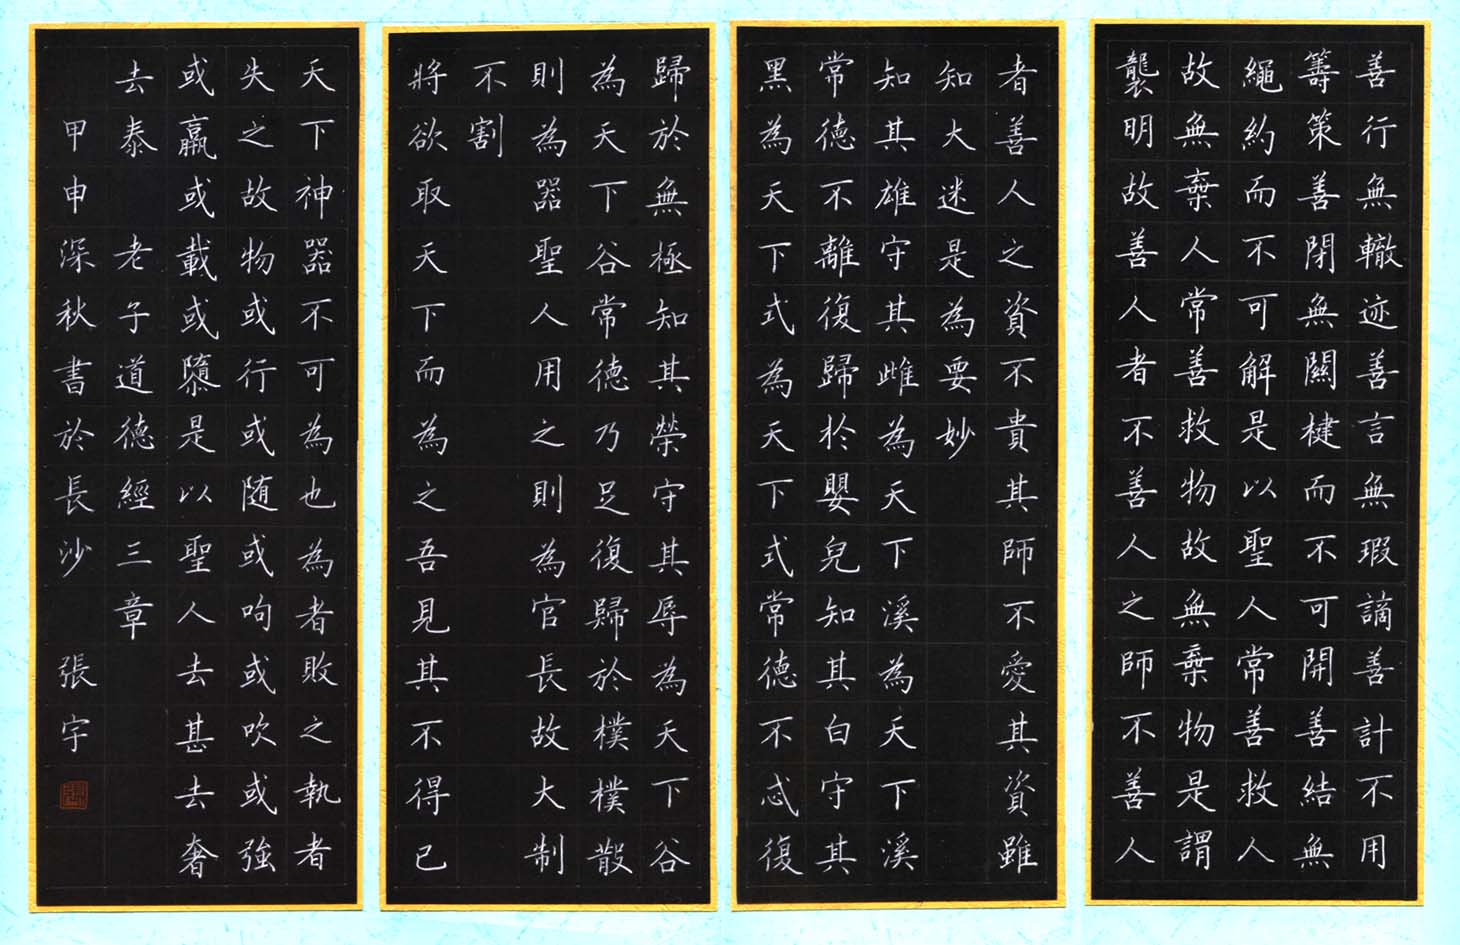 善行無轍迹善言無瑕謫善計不用
籌策善閉無關楗而不可開善結無
繩約而不可解是以聖人常善救人
故無棄人常善救物故無棄物是謂
襲明故善人者不善人之師不善人
者善人之資不貴其師不愛其資雖
知大迷是為要妙
知其雄守其雌為天下溪為天下溪
常德不離復歸於嬰兒知其白守其
黑為天下式為天下式常德不忒復
歸於無極知其榮守其辱為天下谷
為天下谷常德乃足復歸於樸樸散
則為器聖人用之則為官長故大制
不割
將欲取天下而為之吾見其不得已
天下神器不可為也為者敗之執者
失之故物或行或随或呴或吹或強
或羸或載或隳是以聖人去甚去奢
去泰 老子道德經三章
甲申深秋書於長沙 張宇